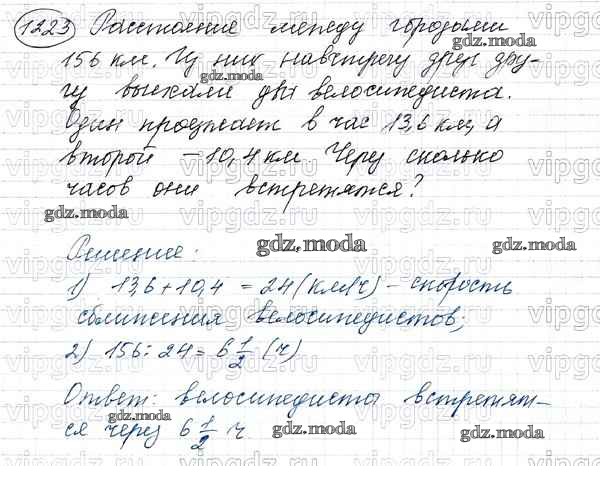 1223 Расстояние между городами
156 км. Из них навстречу друг дру-
гу выехали два велосипедиста.
Один проезжает в час 13,6 км, а
второй – 10,4 км. Через сколько
часов они встретятся?
Решение:
1) 13,6 + 10,4 = 24 (км/ч) – скорость
сближения велосипедистов;
2) 156 : 24 = 6 1/2 (ч)
Ответ: велосипедисты встретят-
ся через 6 1/2 ч
gdz.moda
vipgdz.ru